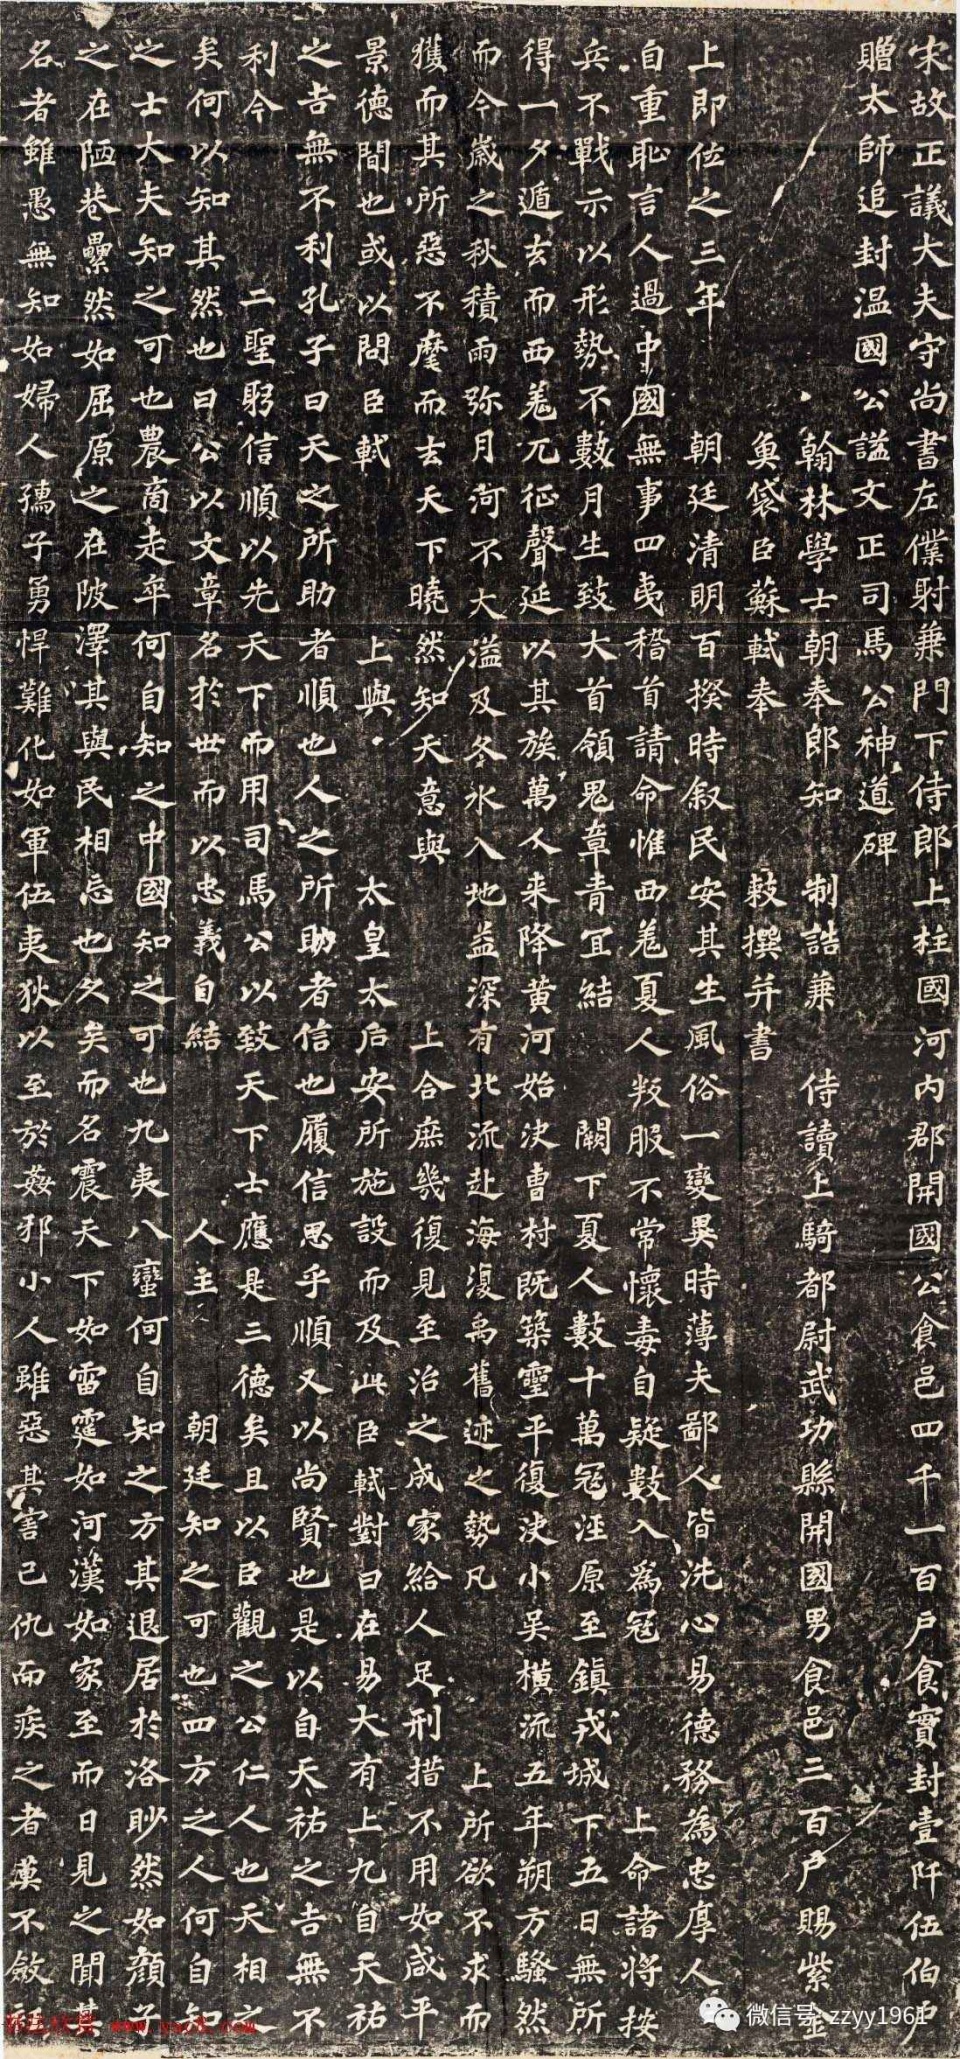 宋故正議大夫守尚書左僕射兼門下侍郎上柱國河內郡開國公食邑四千一百戶食實封壹阡伍伯戶
贈太師追封溫國公謚文正司馬公神道碑
翰林學士朝奉郎知 制誥兼 侍讀上騎都尉武功縣開國男食邑三百戶賜紫金
魚袋臣蘇軾奉 敕撰并書
上即位之三年 朝廷清明百揆時叙民安其生風俗一變異時薄夫鄙人皆洗心易德務為忠厚人人
自重恥言人過中國無事四夷稽首請命惟西羌夏人叛服不常懷毒自疑數入為寇 上命諸將按
兵不戰示以形勢不數月生致大首領鬼章青宜結 闕下夏人數十萬寇涇原至鎮戎城下五日無所
得一夕遁去而西羌兀征聲延以其族萬人來降黃河始決曹村既築靈平復決小吳橫流五年朔方騷然
而今歲之秋積雨弥月河不大溢及冬水入地益深有北流赴海復禹舊迹之勢凡 上所欲不求而
獲而其所惡不麾而去天下曉然知天意與 上合庶幾復見至治之成家給人足刑措不用如咸平
景德間也或以問臣軾 上與 太皇太后安所施設而及此臣軾對曰在易大有上九自天祐
之吉無不利孔子曰天之所助者順也人之所助者信也履信思乎順又以尚賢也是以自天祐之吉無不
利今 二聖躬信順以先天下而用司馬公以致天下士應是三德矣且以臣觀之公仁人也天相之
矣何以知其然也曰公以文章名於世而以忠義自結 人主 朝廷知之可也四方之人何自知
之士大夫知之可也農商走卒何自知之中國知之可也九夷八蠻何自知之方其退居於洛眇然如顏子
之在陋巷纍然如屈原之在陂澤其與民相忘也久矣而名震天下如雷霆如河漢如家至而日見之聞其
名者雖愚無知如婦人孺子勇悍難化如軍伍夷狄以至於姦邪小人雖惡其害己仇而疾之者莫不斂
微信号: zzyy1961